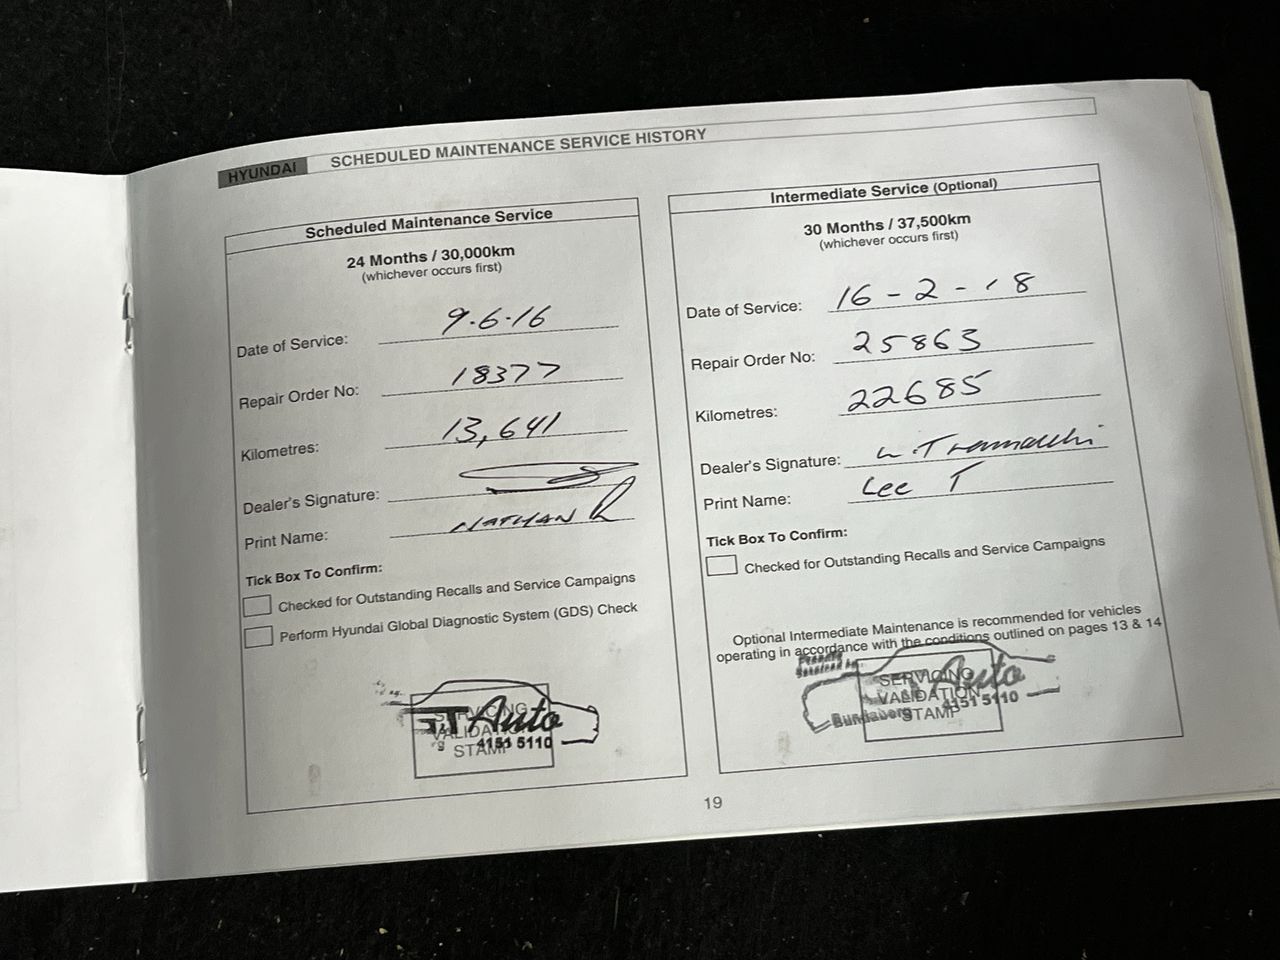 HYUNDAI SCHEDULED MAINTENANCE SERVICE HISTORY
Scheduled Maintenance Service
24 Months / 30,000km
(whichever occurs first)
Date of Service: 9.6.16
Repair Order No: 18377
Kilometres: 13,641
Dealer's Signature:
Print Name: NATHAN R
Tick Box To Confirm:
Checked for Outstanding Recalls and Service Campaigns
Perform Hyundai Global Diagnostic System (GDS) Check
SERVICING
VALIDATION
STAMP
Auto
4151 5110
Intermediate Service (Optional)
30 Months / 37,500km
(whichever occurs first)
Date of Service: 16-2-18
Repair Order No: 25863
Kilometres: 22685
Dealer's Signature:
Print Name: Lee T
Tick Box To Confirm:
Checked for Outstanding Recalls and Service Campaigns
Optional Intermediate Maintenance is recommended for vehicles
operating in accordance with the conditions outlined on pages 13 & 14
SERVICING
VALIDATION
STAMP
Auto
Bundaberg 4151 5110
19